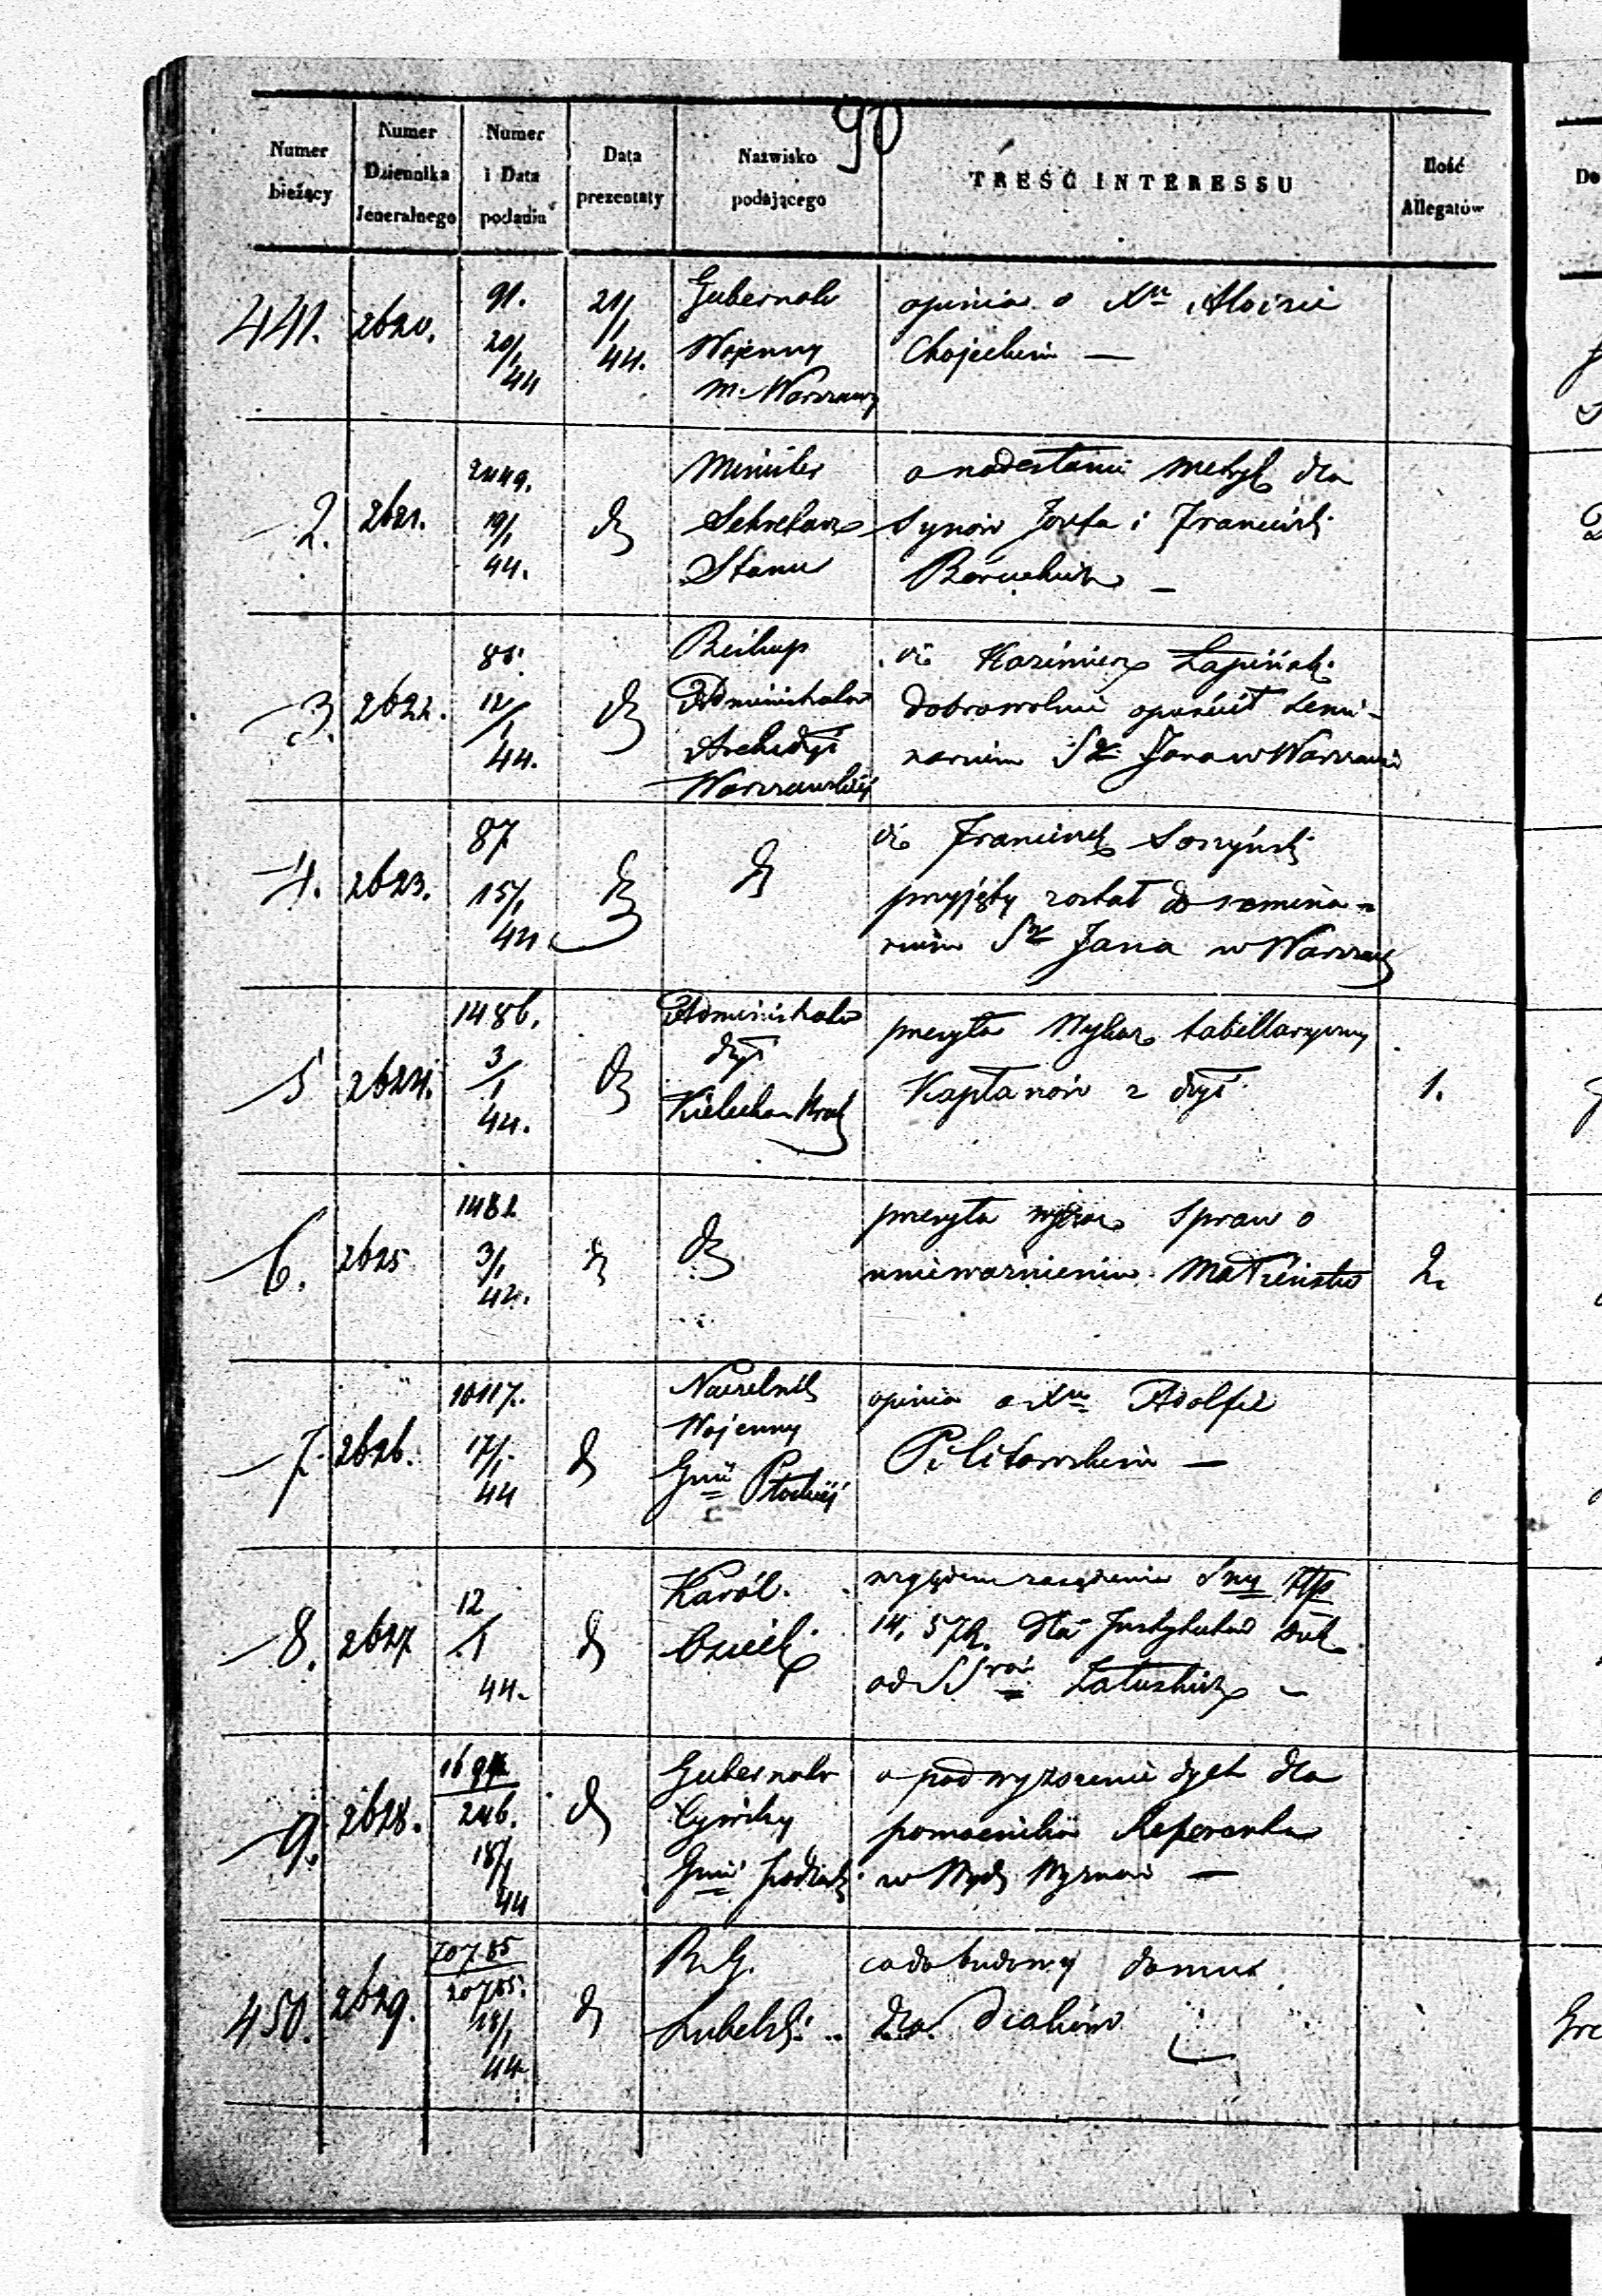 90
Numer bieżący
Numer Dziennika Jeneralnego
Numer i Data podania
Data prezentaty
Nazwisko podającego
TREŚĆ INTERESSU
Ilość Allegatów
441. 2620. 91. 20/1 44 21/1 44.
Gubernator
Wojenny
m. Warszawy
opinia o Xu Aloizie
Chojeckim —
2. 2621. 2449. 19/1 44. dt
Minister
Sekretarz
Stanu
o nadesłanie metryk dla
Synów Józefa i Franciszki
3. 2622. 12/1 44. dt
Biskup
Administrator
Archidyi
Warszawskiéj
iż Kazimierz Łapiński
dobrowolnie opuścił Semi-
narium Sgo Jana w Warszawie
4. 2623. 87 15/1 44. dt
dt
iż Franciszek Soszyński
przyjęty został do semina-
rium Sgo Jana w Warszawie
5 2624. 1486. 3/1 44. dt
Administrator
dyi
Kielecko Krak
przesyła Wykaz tabellaryczny
Kapłanów z dyi
1.
6. 2625 3/1 dt
dt
przesyła wykaz spraw o
unieważnienie Małżeństw
2.
7. 2626. 10117. 17/1 44 dt
Naczelnik
Wojenny
Gnii Płockiéj
opinia o Xu Adolfie
Pilitowskim —
8. 2627 12/1 44. dt
Karól
względem zasądzenia Smy
14,572. dla Instytutów
od SSrów Załuskich —
9. 2628. 246. 18/1 44 dt
Gubernator
Cywilny
Gnii Podlas
o podwyższenie dyet dla
pomocnika Referenta
w Wydz Wyznań —
450. 2629. 20785 18/1 44 dt
R. G.
Lubelski
co do budowy domu
dla Diaków